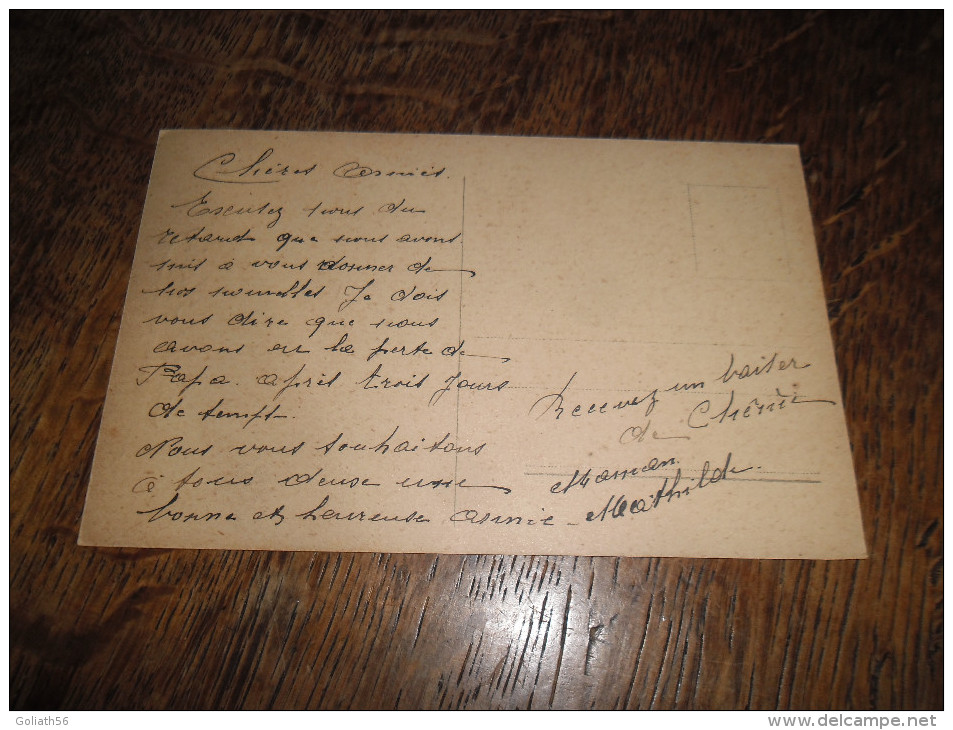 Chères Amies.
Excusez nous du
retard que nous avons
mis à vous donner de
nos nouvelles Je dois
vous dire que nous
avons eu la perte de
Papa. après trois jours
de temps.
Nous vous souhaitons
à tous deux une
bonne et heureuse année
Recevez un baiser
de
Maman.
Mathilde.
Goliath56
www.delcampe.net